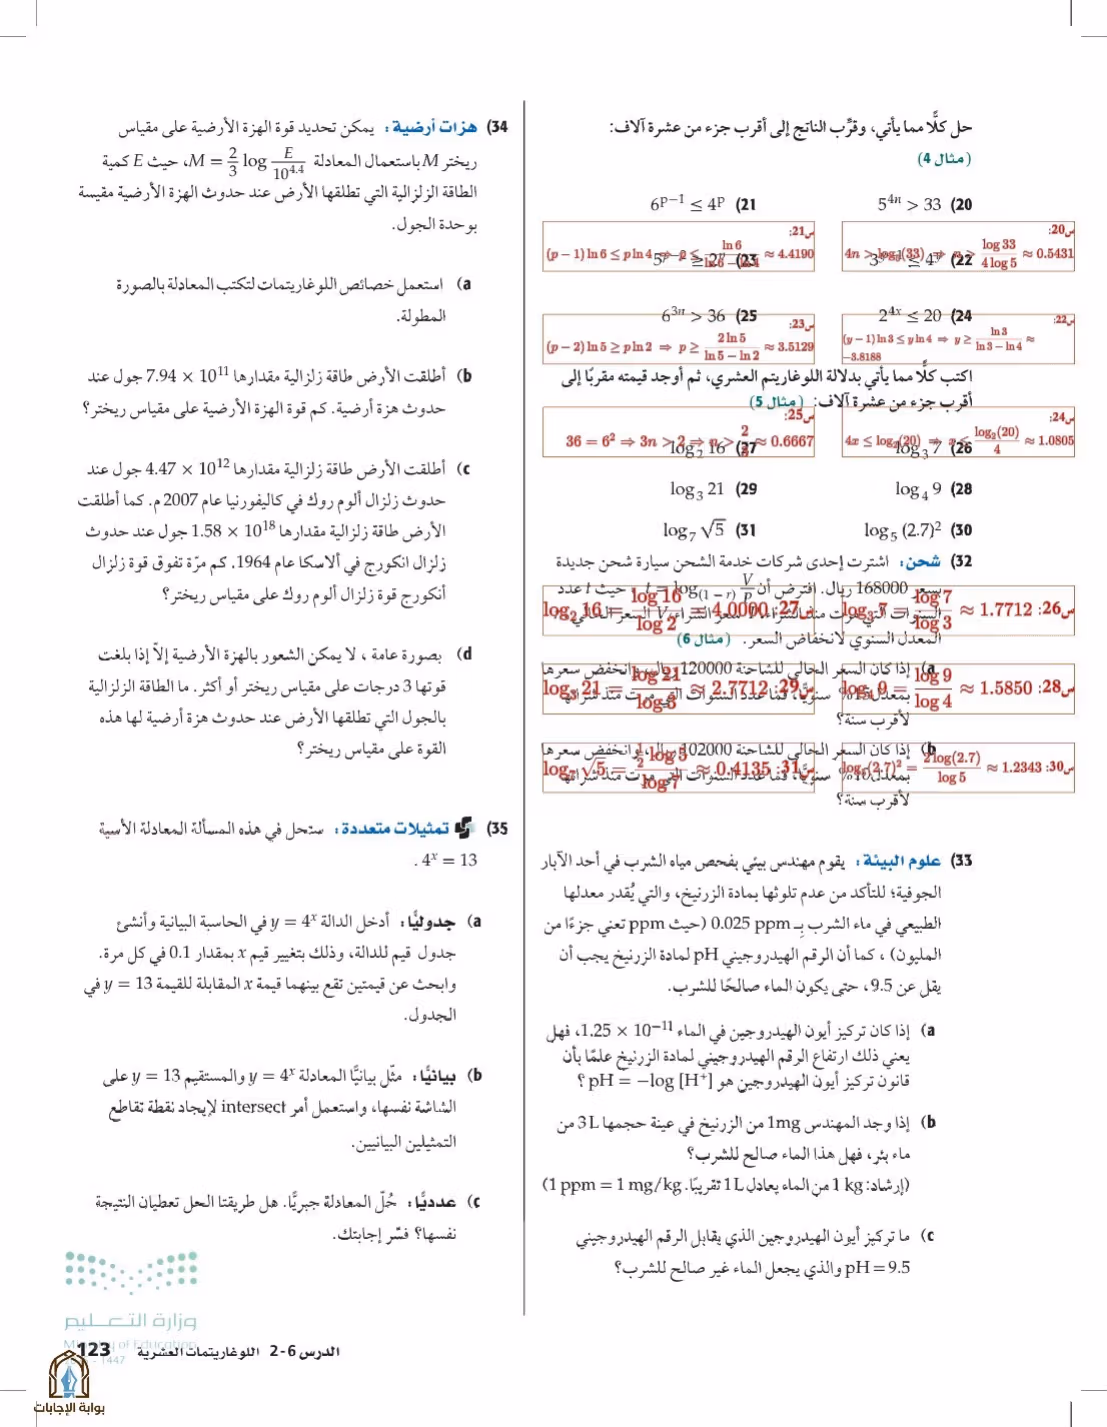 حل كلًّا مما يأتي، وقرِّب الناتج إلى أقرب جزء من عشرة آلاف:
(مثال 4)
20) 5^{4n} > 33
21) 6^{p−1} ≤ 4^p
س20: 4n > log_5(33) ⇒ n > \frac{log 33}{4 log 5} ≈ 0.5431
س21: (p − 1) ln 6 ≤ p ln 4 ⇒ p ≤ \frac{ln 6}{ln 6 − ln 4} ≈ 4.4190
22) 3^{y−1} ≤ 4^y
23) 5^{p−2} ≥ 2^p
24) 2^{4x} ≤ 20
25) 6^{3n} > 36
س22: (y − 1) ln 3 ≤ y ln 4 ⇒ y ≥ \frac{ln 3}{ln 3 − ln 4} ≈ −3.8188
س23: (p − 2) ln 5 ≥ p ln 2 ⇒ p ≥ \frac{2 ln 5}{ln 5 − ln 2} ≈ 3.5129
اكتب كلًّا مما يأتي بدلالة اللوغاريتم العشري، ثم أوجد قيمته مقربًا إلى
أقرب جزء من عشرة آلاف: (مثال 5)
س24: 4x ≤ log_2(20) ⇒ x ≤ \frac{log_2(20)}{4} ≈ 1.0805
س25: 36 = 6^2 ⇒ 3n > 2 ⇒ n > \frac{2}{3} ≈ 0.6667
26) log_3 7
27) log_2 16
28) log_4 9
29) log_3 21
30) log_5 (2.7)^2
31) log_7 √5
32) شحن: اشترت إحدى شركات خدمة الشحن سيارة شحن جديدة
بسعر 168000 ريال. افترض أن t = log_{(1 − r)} \frac{V}{P}، حيث t عدد
السنوات التي مرت منذ الشراء، P سعر الشراء، V السعر الحالي،
المعدل السنوي لانخفاض السعر. (مثال 6)
س26: log_3 7 = \frac{log 7}{log 3} ≈ 1.7712
س27: log_2 16 = \frac{log 16}{log 2} = 4.0000
a) إذا كان السعر الحالي للشاحنة 120000 ريال، وانخفض سعرها
بمعدل 15% سنويًّا، فما عدد السنوات التي مرت منذ شرائها
لأقرب سنة؟
س28: log_4 9 = \frac{log 9}{log 4} ≈ 1.5850
س29: log_3 21 = \frac{log 21}{log 3} ≈ 2.7712
b) إذا كان السعر الحالي للشاحنة 102000 ريال، وانخفض سعرها
بمعدل 10% سنويًّا، فما عدد السنوات التي مرت منذ شرائها
لأقرب سنة؟
س30: log_5(2.7)^2 = \frac{2 log(2.7)}{log 5} ≈ 1.2343
س31: log_7 √5 = \frac{\frac{1}{2} log 5}{log 7} ≈ 0.4135
33) علوم البيئة: يقوم مهندس بيئي بفحص مياه الشرب في أحد الآبار
الجوفية؛ للتأكد من عدم تلوثها بمادة الزرنيخ، والتي يُقدر معدلها
الطبيعي في ماء الشرب بـ 0.025 ppm (حيث ppm تعني جزءًا من
المليون) ، كما أن الرقم الهيدروجيني pH لمادة الزرنيخ يجب أن
يقل عن 9.5، حتى يكون الماء صالحًا للشرب.
a) إذا كان تركيز أيون الهيدروجين في الماء 1.25 × 10^{−11}، فهل
يعني ذلك ارتفاع الرقم الهيدروجيني لمادة الزرنيخ علمًا بأن
قانون تركيز أيون الهيدروجين هو pH = −log [H^+] ؟
b) إذا وجد المهندس 1mg من الزرنيخ في عينة حجمها 3L من
ماء بئر، فهل هذا الماء صالح للشرب؟
(إرشاد: 1 kg من الماء يعادل 1L تقريبًا. 1 ppm = 1 mg/kg)
c) ما تركيز أيون الهيدروجين الذي يقابل الرقم الهيدروجيني
pH = 9.5 والذي يجعل الماء غير صالح للشرب؟
34) هزات أرضية: يمكن تحديد قوة الهزة الأرضية على مقياس
ريختر M باستعمال المعادلة M = \frac{2}{3} log \frac{E}{10^{4.4}}، حيث E كمية
الطاقة الزلزالية التي تطلقها الأرض عند حدوث الهزة الأرضية مقيسة
بوحدة الجول.
a) استعمل خصائص اللوغاريتمات لتكتب المعادلة بالصورة
المطولة.
b) أطلقت الأرض طاقة زلزالية مقدارها 7.94 × 10^{11} جول عند
حدوث هزة أرضية. كم قوة الهزة الأرضية على مقياس ريختر؟
c) أطلقت الأرض طاقة زلزالية مقدارها 4.47 × 10^{12} جول عند
حدوث زلزال ألوم روك في كاليفورنيا عام 2007 م. كما أطلقت
الأرض طاقة زلزالية مقدارها 1.58 × 10^{18} جول عند حدوث
زلزال انكورج في ألاسكا عام 1964. كم مرّة تفوق قوة زلزال
أنكورج قوة زلزال ألوم روك على مقياس ريختر؟
d) بصورة عامة ، لا يمكن الشعور بالهزة الأرضية إلاّ إذا بلغت
قوتها 3 درجات على مقياس ريختر أو أكثر. ما الطاقة الزلزالية
بالجول التي تطلقها الأرض عند حدوث هزة أرضية لها هذه
القوة على مقياس ريختر؟
35) تمثيلات متعددة: ستحل في هذه المسألة المعادلة الأسية
4^x = 13 .
a) جدوليًّا: أدخل الدالة y = 4^x في الحاسبة البيانية وأنشئ
جدول قيم للدالة، وذلك بتغيير قيم x بمقدار 0.1 في كل مرة.
وابحث عن قيمتين تقع بينهما قيمة x المقابلة للقيمة y = 13 في
الجدول.
b) بيانيًّا: مثّل بيانيًّا المعادلة y = 4^x والمستقيم y = 13 على
الشاشة نفسها، واستعمل أمر intersect لإيجاد نقطة تقاطع
التمثيلين البيانيين.
c) عدديًّا: حُلّ المعادلة جبريًّا. هل طريقتا الحل تعطيان النتيجة
نفسها؟ فسّر إجابتك.
وزارة التعليم
Ministry of Education
1447
الدرس 6-2 اللوغاريتمات العشرية 123
بوابة الإجابات